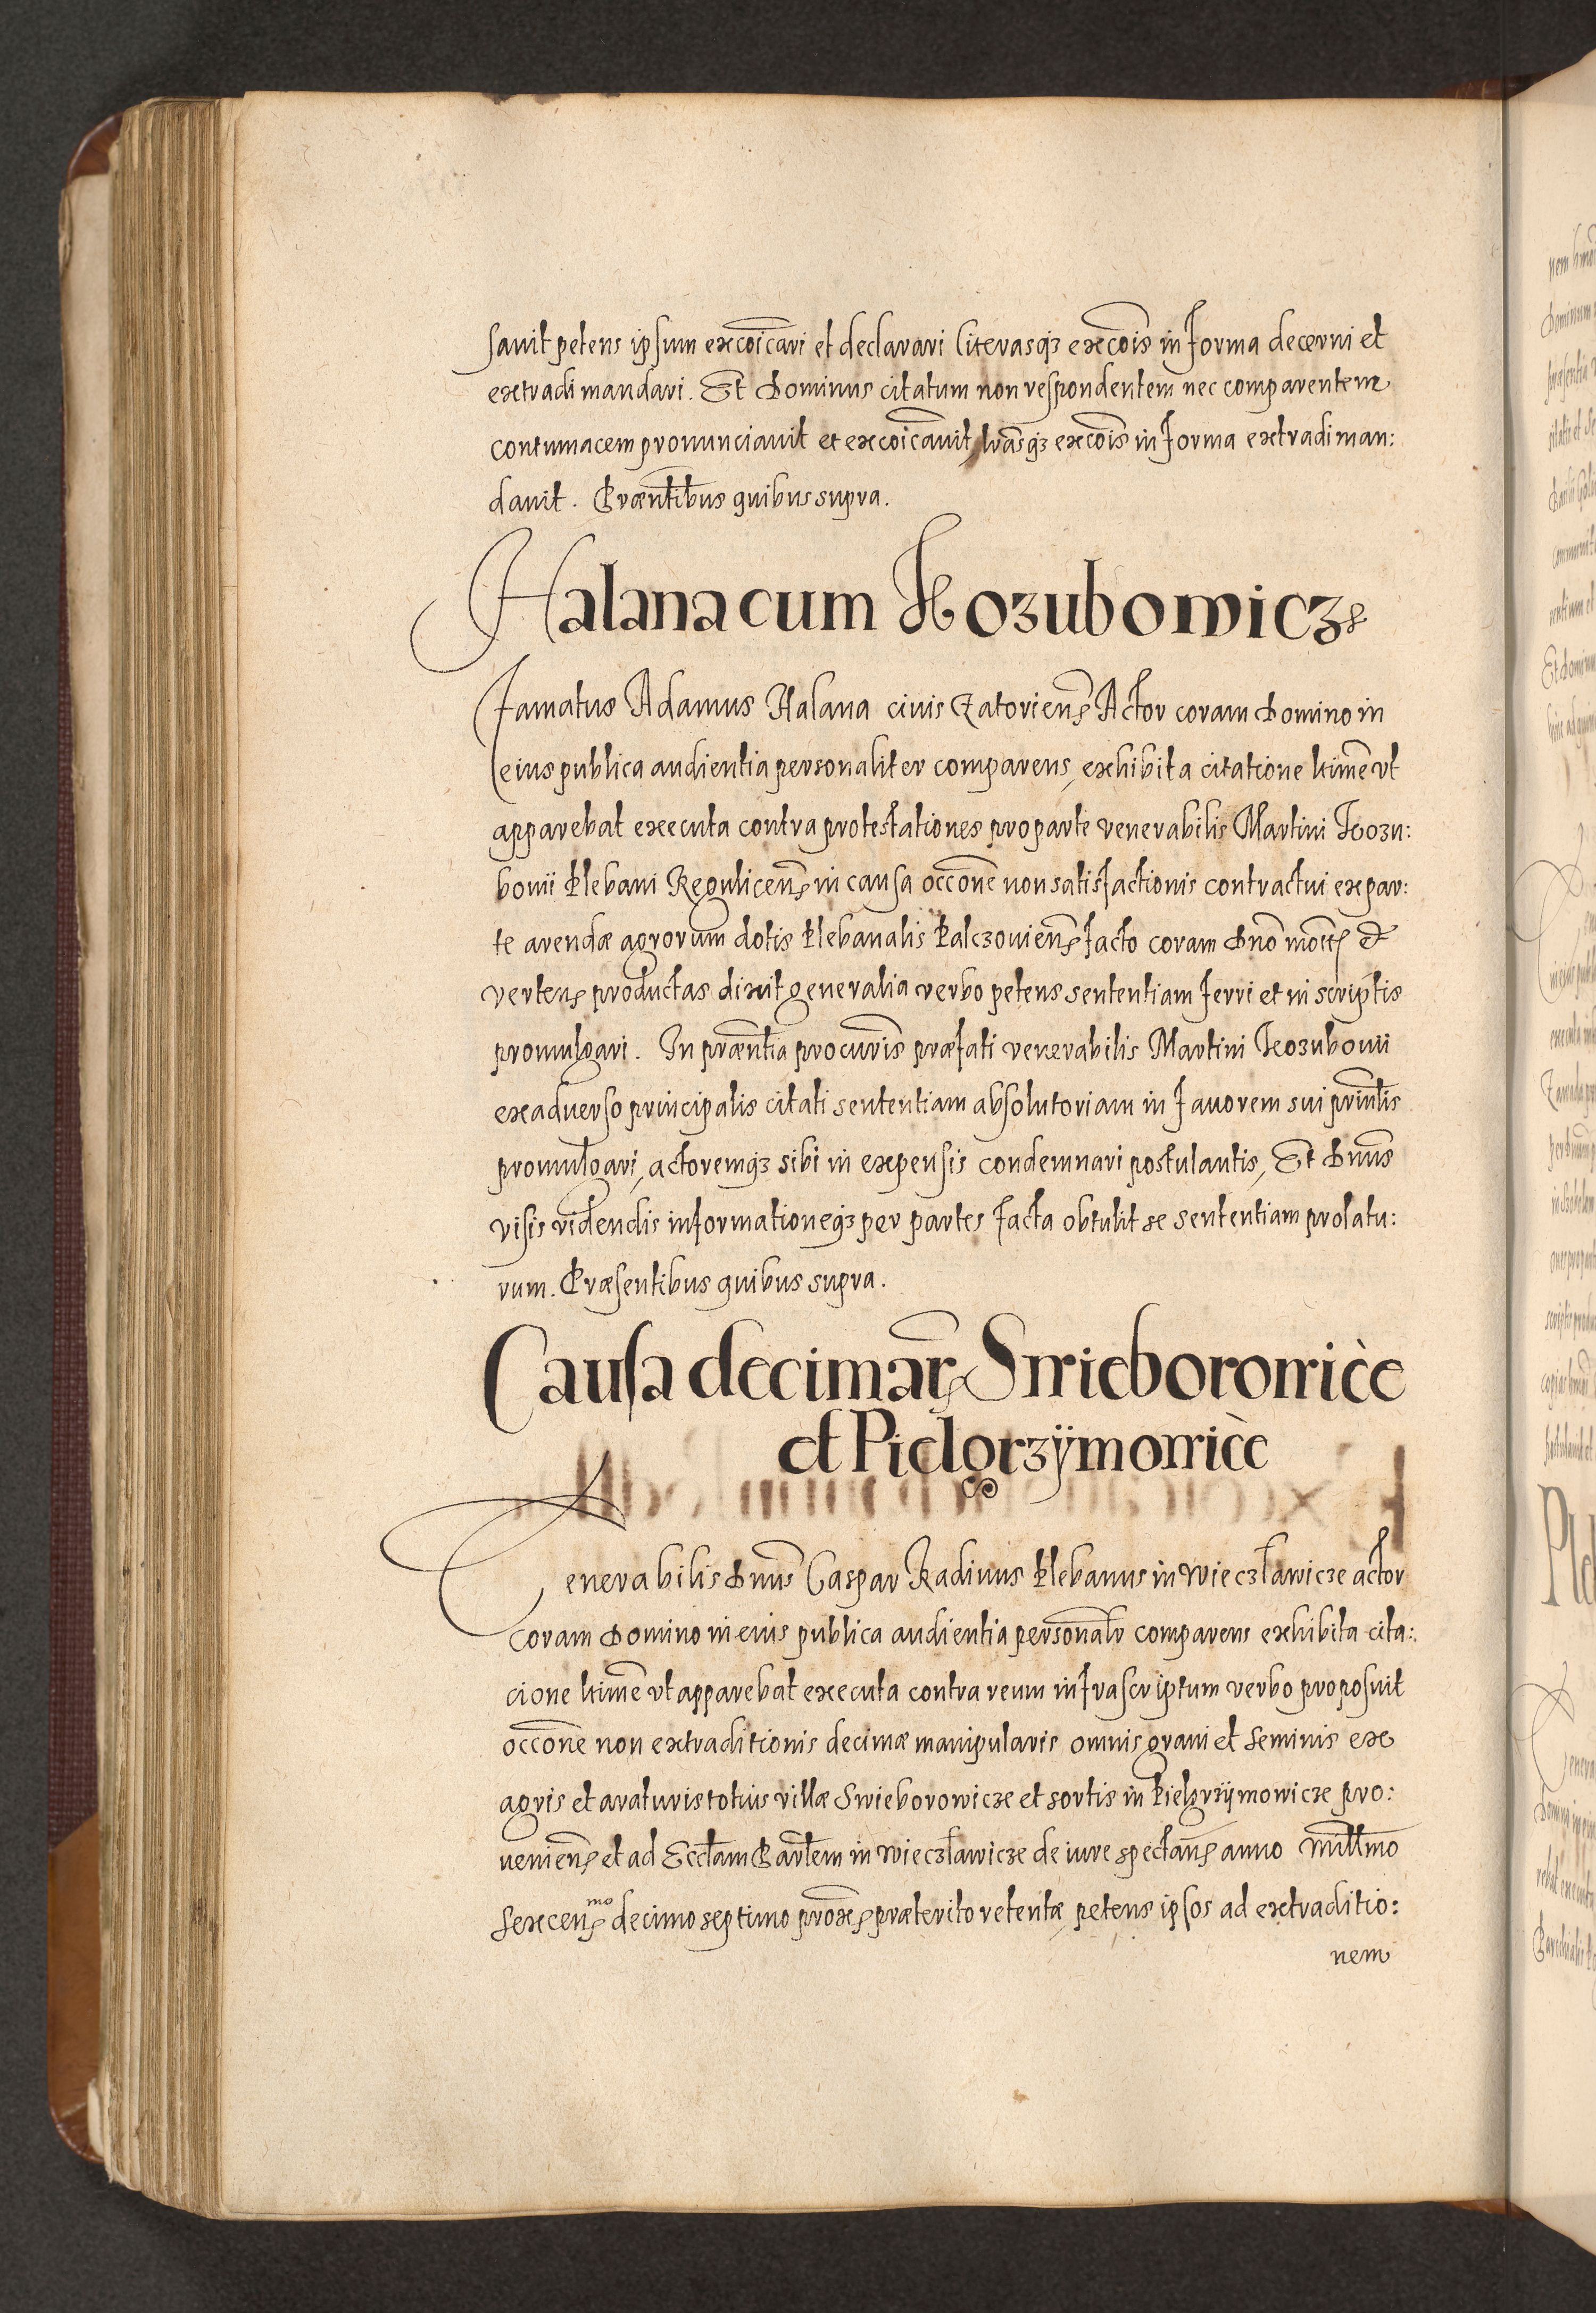 sauit petens ipsum excoicari et declarari literasqz excois in forma decerni et
extradi mandari. Et Dominus citatum non respondentem nec comparentem
contumacem pronunciauit et excoicauit, lrasqz excois in forma extradi man:
dauit. Præntibus quibus supra.
Halana cum Kozubowicz
Famatus Adamus Halana ciuis Zatoriens Actor coram Domino in
eius publica audientia personaliter comparens, exhibita citatione ltime vt
apparebat executa contra protestationes pro parte venerabilis Martini Kozu:
bouii Plebani Regulicens in causa occone non satisfactionis contractui ex par:
te arendæ agrorum dotis Plebanalis Palczouiens facto coram Dno
vertens productas dixit generalia verbo petens sententiam ferri et in scriptis
promulgari. In præntia procuris præfati venerabilis Martini Kozubouii
ex aduerso principalis citati sententiam absolutoriam in fauorem sui prinlis
promulgari, actoremqz sibi in expensis condemnari postulantis, Et Dnus
visis videndis informationeqz per partes facta obtulit se sententiam prolatu:
rum. Præsentibus quibus supra.
Causa decimar Swieborowice
et Pielgrzÿmowice
Venerabilis Dnus Caspar Radinus Plebanus in Wieczławicze actor
coram Domino in eius publica audientia personalr comparens exhibita cita:
cione ltime vt apparebat executa contra reum infrascriptum verbo proposuit
occone non extraditionis decimæ manipularis omnis grani et seminis ex
agris et araturis totius villæ Swieborowicze et sortis in Pielgrzÿmowicze pro:
ueniens et ad Eccłam Parlem in Wieczławicze de iure spectans anno Millmo
sexcens mo decimo septimo prox præterito retentæ petens ipsos ad extraditio:
nem